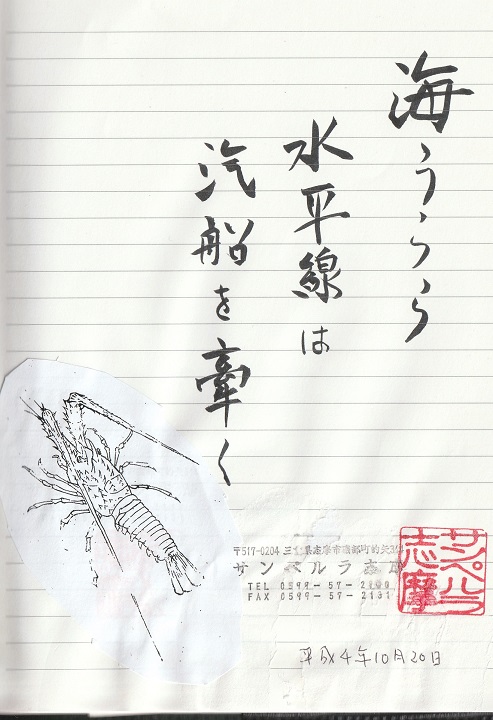 海うらら
水平線は
汽船を牽く
〒517-0204 三重県志摩市磯部町的矢
サンペルラ志摩
TEL 0599-57-
FAX 0599-57-2131
サンペルラ
志摩
平成4年10月20日